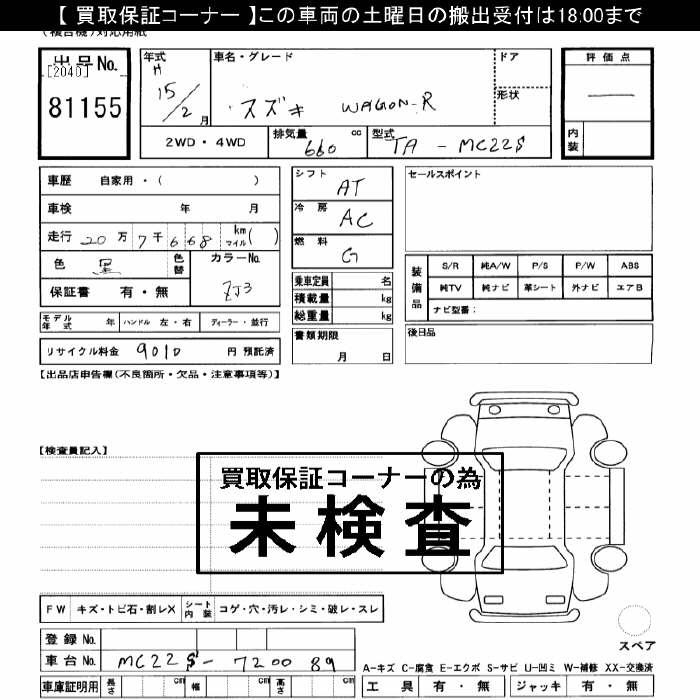 【 買取保証コーナー 】この車両の土曜日の搬出受付は18:00まで
(複合機)対応用紙
出品No.
[2040]
81155
年式
H
15/2 月
車名・グレード
スズキ WAGON-R
ドア
形状
評価点
内装
2WD・4WD
排気量 660 cc
型式 TA - MC22S
車歴 自家用・( )
車検 年 月
走行 20万7千668 km マイル( )
色 黒
色替
カラーNo. ZJ3
保証書 有・無
シフト AT
冷房 AC
燃料 G
乗車定員 名
積載量 kg
総重量 kg
セールスポイント
装備品
S/R 純A/W P/S P/W ABS
純TV 純ナビ 革シート 外ナビ エアB
ナビ型番:
モデル年式 年 ハンドル 左・右 ディーラー・並行
リサイクル料金 9010 円 預託済
書類期限
月 日
後日品
【出品店申告欄(不良箇所・欠品・注意事項等)】
【検査員記入】
買取保証コーナーの為
未検査
FW キズ・トビ石・割レX シート内装 コゲ・穴・汚レ・シミ・破レ・スレ
登録No.
車台No. MC22S-720089
車庫証明用 長さ cm 幅 cm 高さ cm
スペア
A-キズ C-腐食 E-エクボ S-サビ U-凹ミ W-補修 XX-交換済
工具 有・無 ジャッキ 有・無